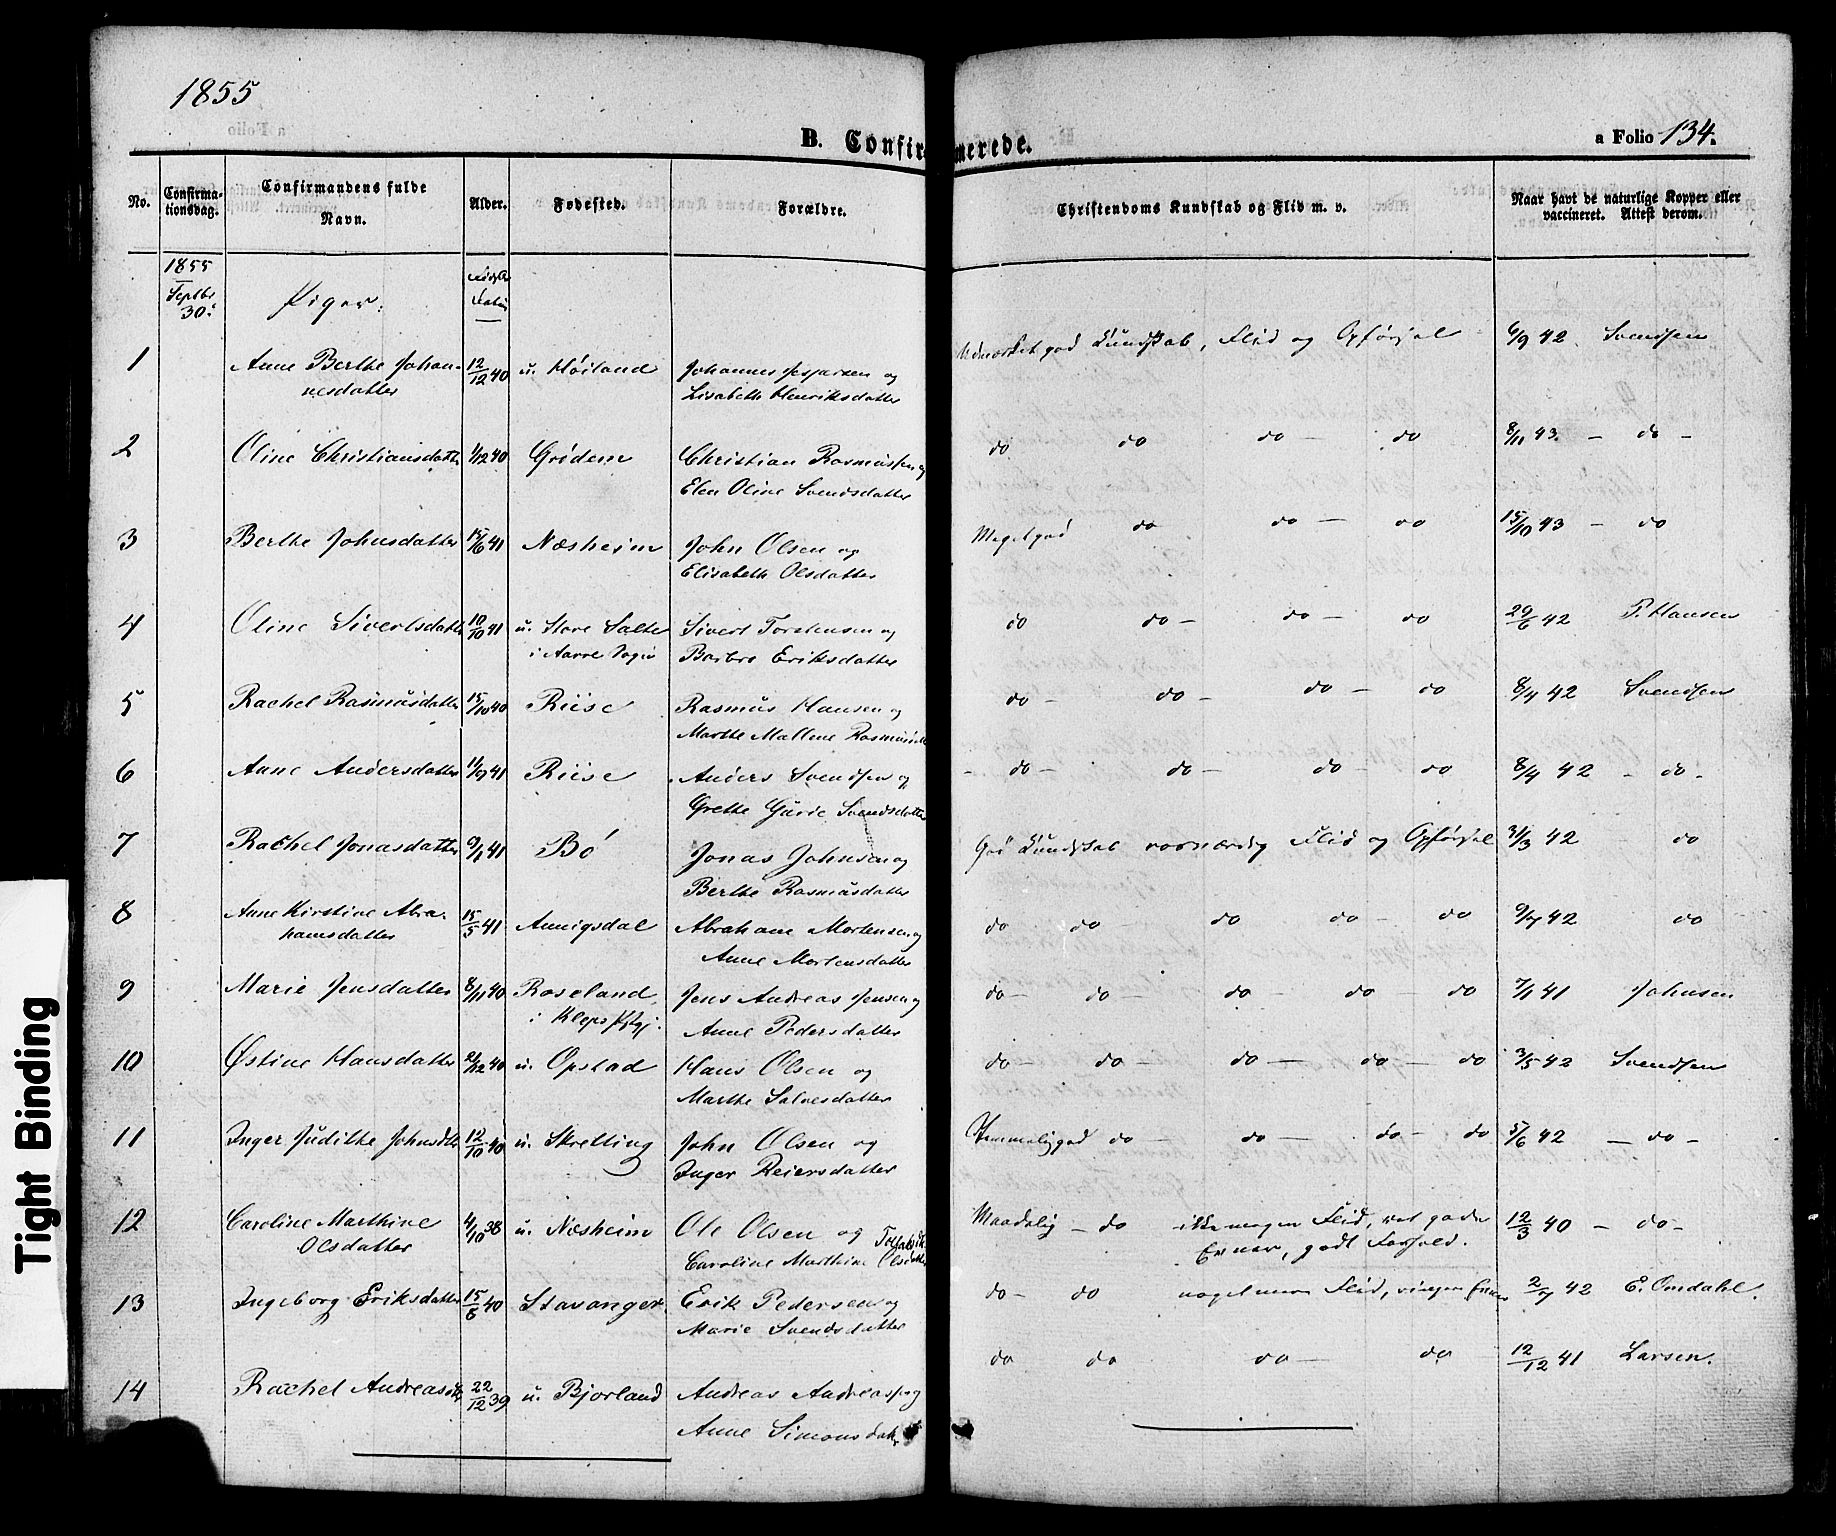 1855
B. Confirmerede.
a Folio 134.
No.
Confirma-
tionsdag.
Confirmandens fulde
Navn.
Alder.
Fødested.
Forældre.
Christendoms Kundskab og Flid m. v.
Naar havt de naturlige Kopper eller
vaccineret. Attest derom.
1855
Septbr
30.
Piger.
1 Anne Berthe Johan- 12/12 40 u. Høiland Johannes Jespersen og
nesdatter Lisabeth Henriksdatter
Udmerket god Kundskab, Flid og Opførsel 6/9 42. Svendsen
2 Oline Christiansdatter 1/12 40 Grödem Christian Rasmussen og
Elen Olive Svendsdatter
do do do — do 8/11 43. — do —
3 Berthe Johnsdatter 15/6 41 Næsheim John Olsen og
Elisabeth Olsdatter
Meget god do do — do 15/10 43 — do
4 Oline Sivertsdatter 10/10 41 u. Store Salte Sivert Torstensen og
i Aarre Sogn Barbro Eriksdatter
do do — do — do 29/6 42 T. Hansen
5 Rachel Rasmusdatter 15/10 40 Riise Rasmus Hansen og
Marthe Mallene
do — do — do — do 8/4 42 Svendsen
6 Anne Andersdatter 11/9 41 Riise Anders Svendsen og
Grethe Gurie Svendsdatter
— do — do — do — do 8/4 42 — do —
7 Rachel Jonasdatter 9/1 41 Bö Jonas Johnsen og
Berthe Rasmusdatter
God Kundskab rosværdig Flid og Opførsel 31/3 42 do
8 Anne Kirstine Abra- 15/5 41 Annigsdal Abraham Mortensen og
hamsdatter Anne Mortensdatter
do do do do — do 9/7 42 do
9 Marie Jensdatter 8/11 40 Roseland Jens Andreas Jensen og
i Kleps Anne Pedersdatter
do — do — do — do — do 7/1 41 Johnsen
10 Østine Hansdatter 2/12 40 u. Opstad Hans Olsen og
Marthe Salvesdatter
do — do — do — do — do 3/5 42 Svendsen
11 Inger Judithe Johnsdtr 12/10 40 u. Skretting John Olsen og
Inger Reiersdatter
Temmelig god do — do — do — do 5/6 42 — do —
12 Caroline Marthine 4/10 38 u. Næsheim Ole Olsen og
Olsdatter Caroline Marthine Olsdatter
Maadelig — do ikke megen Flid, ret gode 12/3 40 — do —
Evner, godt Forhold.
13 Ingeborg Eriksdatter 15/8 40 Stavanger Erik Pedersen og
Marie Svendsdatter
do — do noget mere Flid, ringere Evner 2/7 42 E. Omdahl.
14 Rachel Andreasdtr 22/12 39 u. Bjorland Andreas Andreassen og
Anne Simonsdatter
do do do — do 12/12 41 Larsen.
Tight Binding